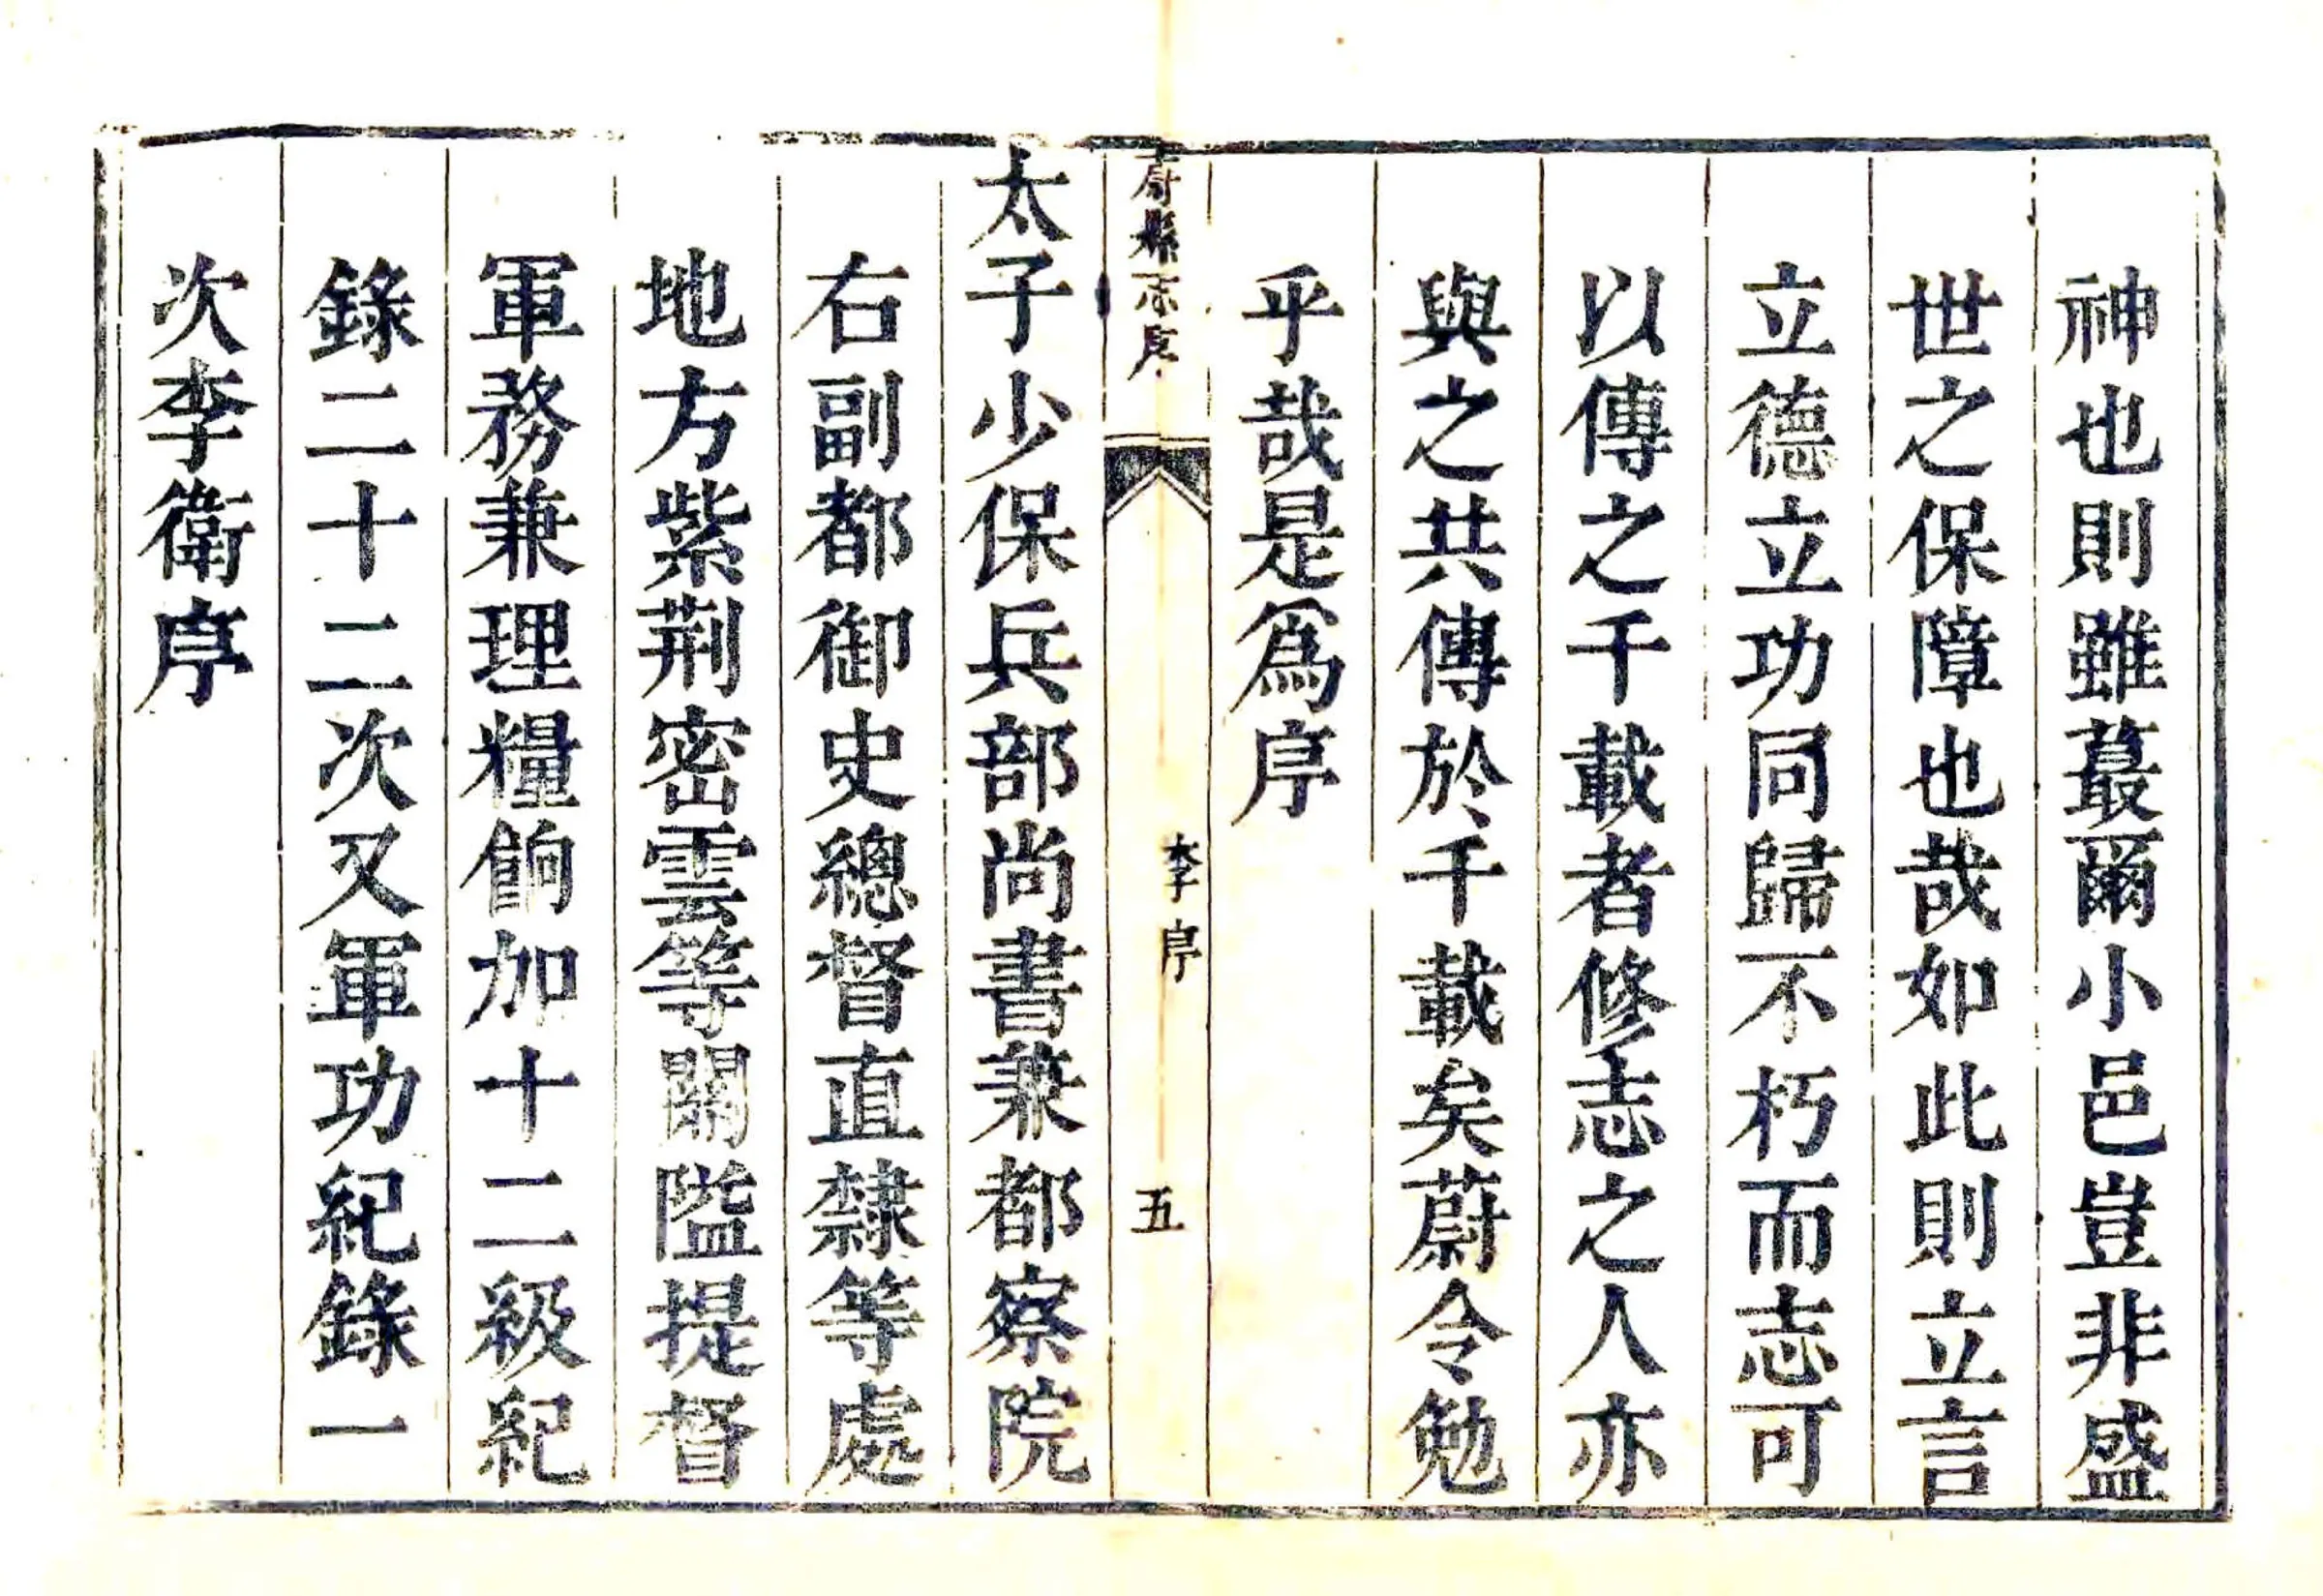 神也則雖蕞爾小邑豈非盛
世之保障也哉如此則立言
立德立功同歸不朽而志可
以傳之千載者修志之人亦
與之共傳於千載矣蔚令勉
乎哉是爲序
蔚縣志序
李序
五
太子少保兵部尚書兼都察院
右副都御史總督直隸等處
地方紫荆密雲等關隘提督
軍務兼理糧餉加十二級紀
錄二十二次又軍功紀錄一
次李衛序